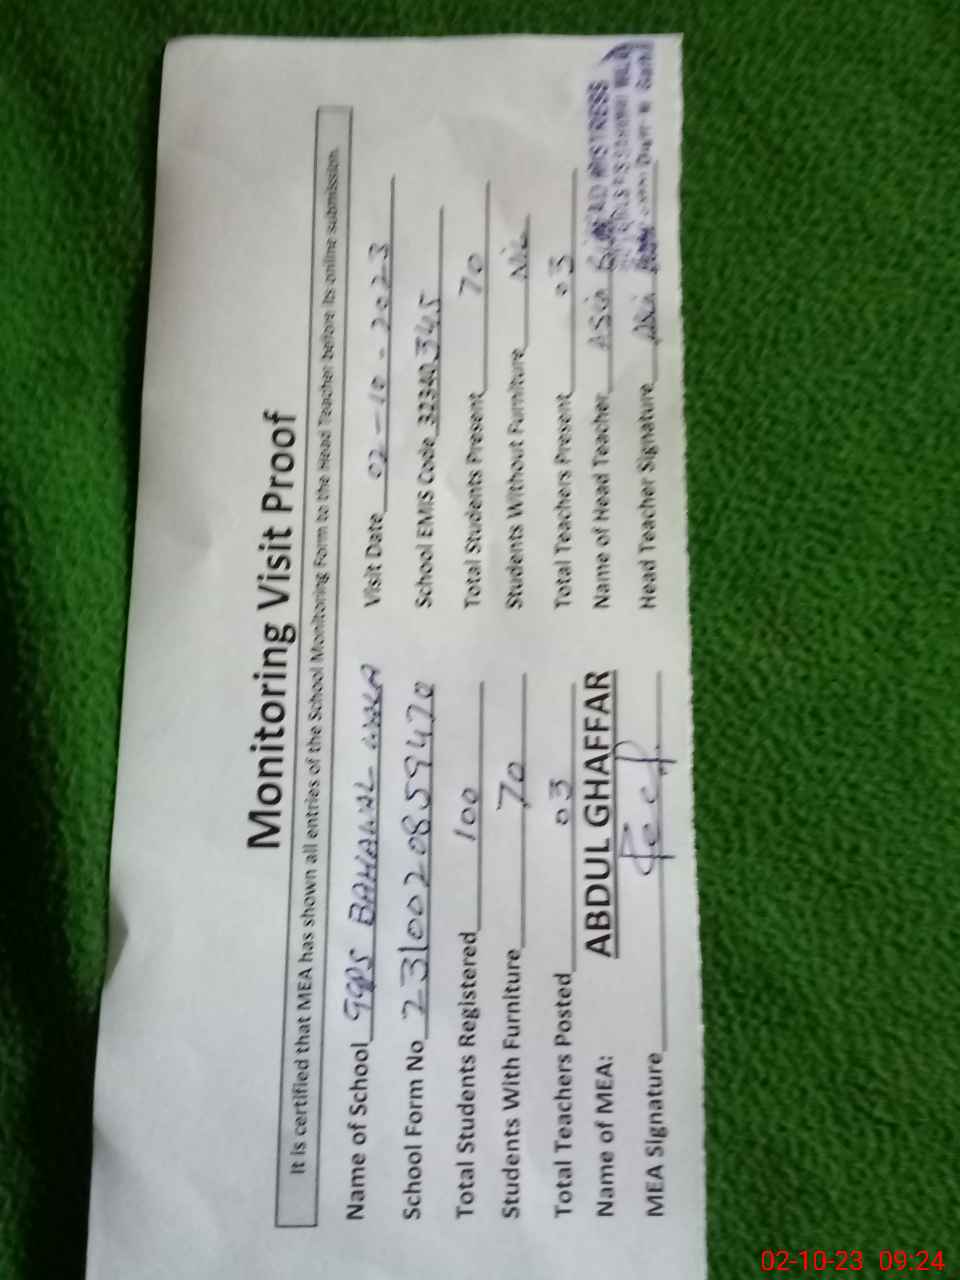 Monitoring Visit Proof
It is certified that MEA has shown all entries of the School Monitoring Form to the Head Teacher before its online submission.
Name of School GGPS BAHAWAL Visit Date 02-10-2023
School Form No 2310020859470 School EMIS Code 32340345
Total Students Registered 100 Total Students Present 70
Students With Furniture 70 Students Without Furniture Nil
Total Teachers Posted 03 Total Teachers Present 03
Name of MEA: ABDUL GHAFFAR Name of Head Teacher Asia
MEA Signature Head Teacher Signature Asia
HEAD MISTRESS
02-10-23 09:24